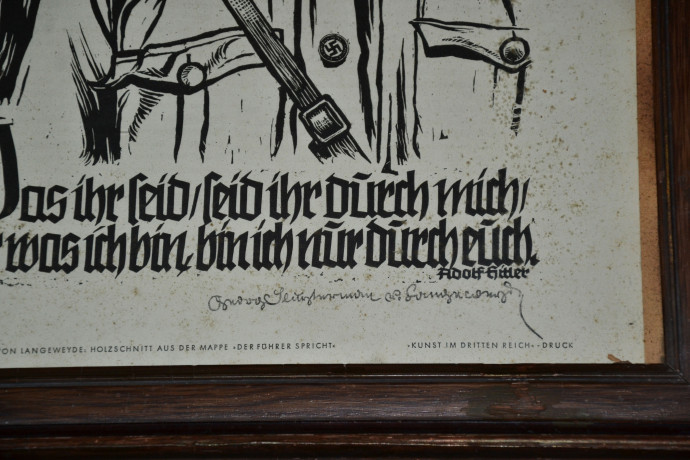 as ihr seid, seid ihr durch mich,
was ich bin, bin ich nur durch euch.
Adolf Hitler
Georg Sluyterman v. Langeweyde
VON LANGEWEYDE: HOLZSCHNITT AUS DER MAPPE »DER FÜHRER SPRICHT« »KUNST IM DRITTEN REICH«-DRUCK